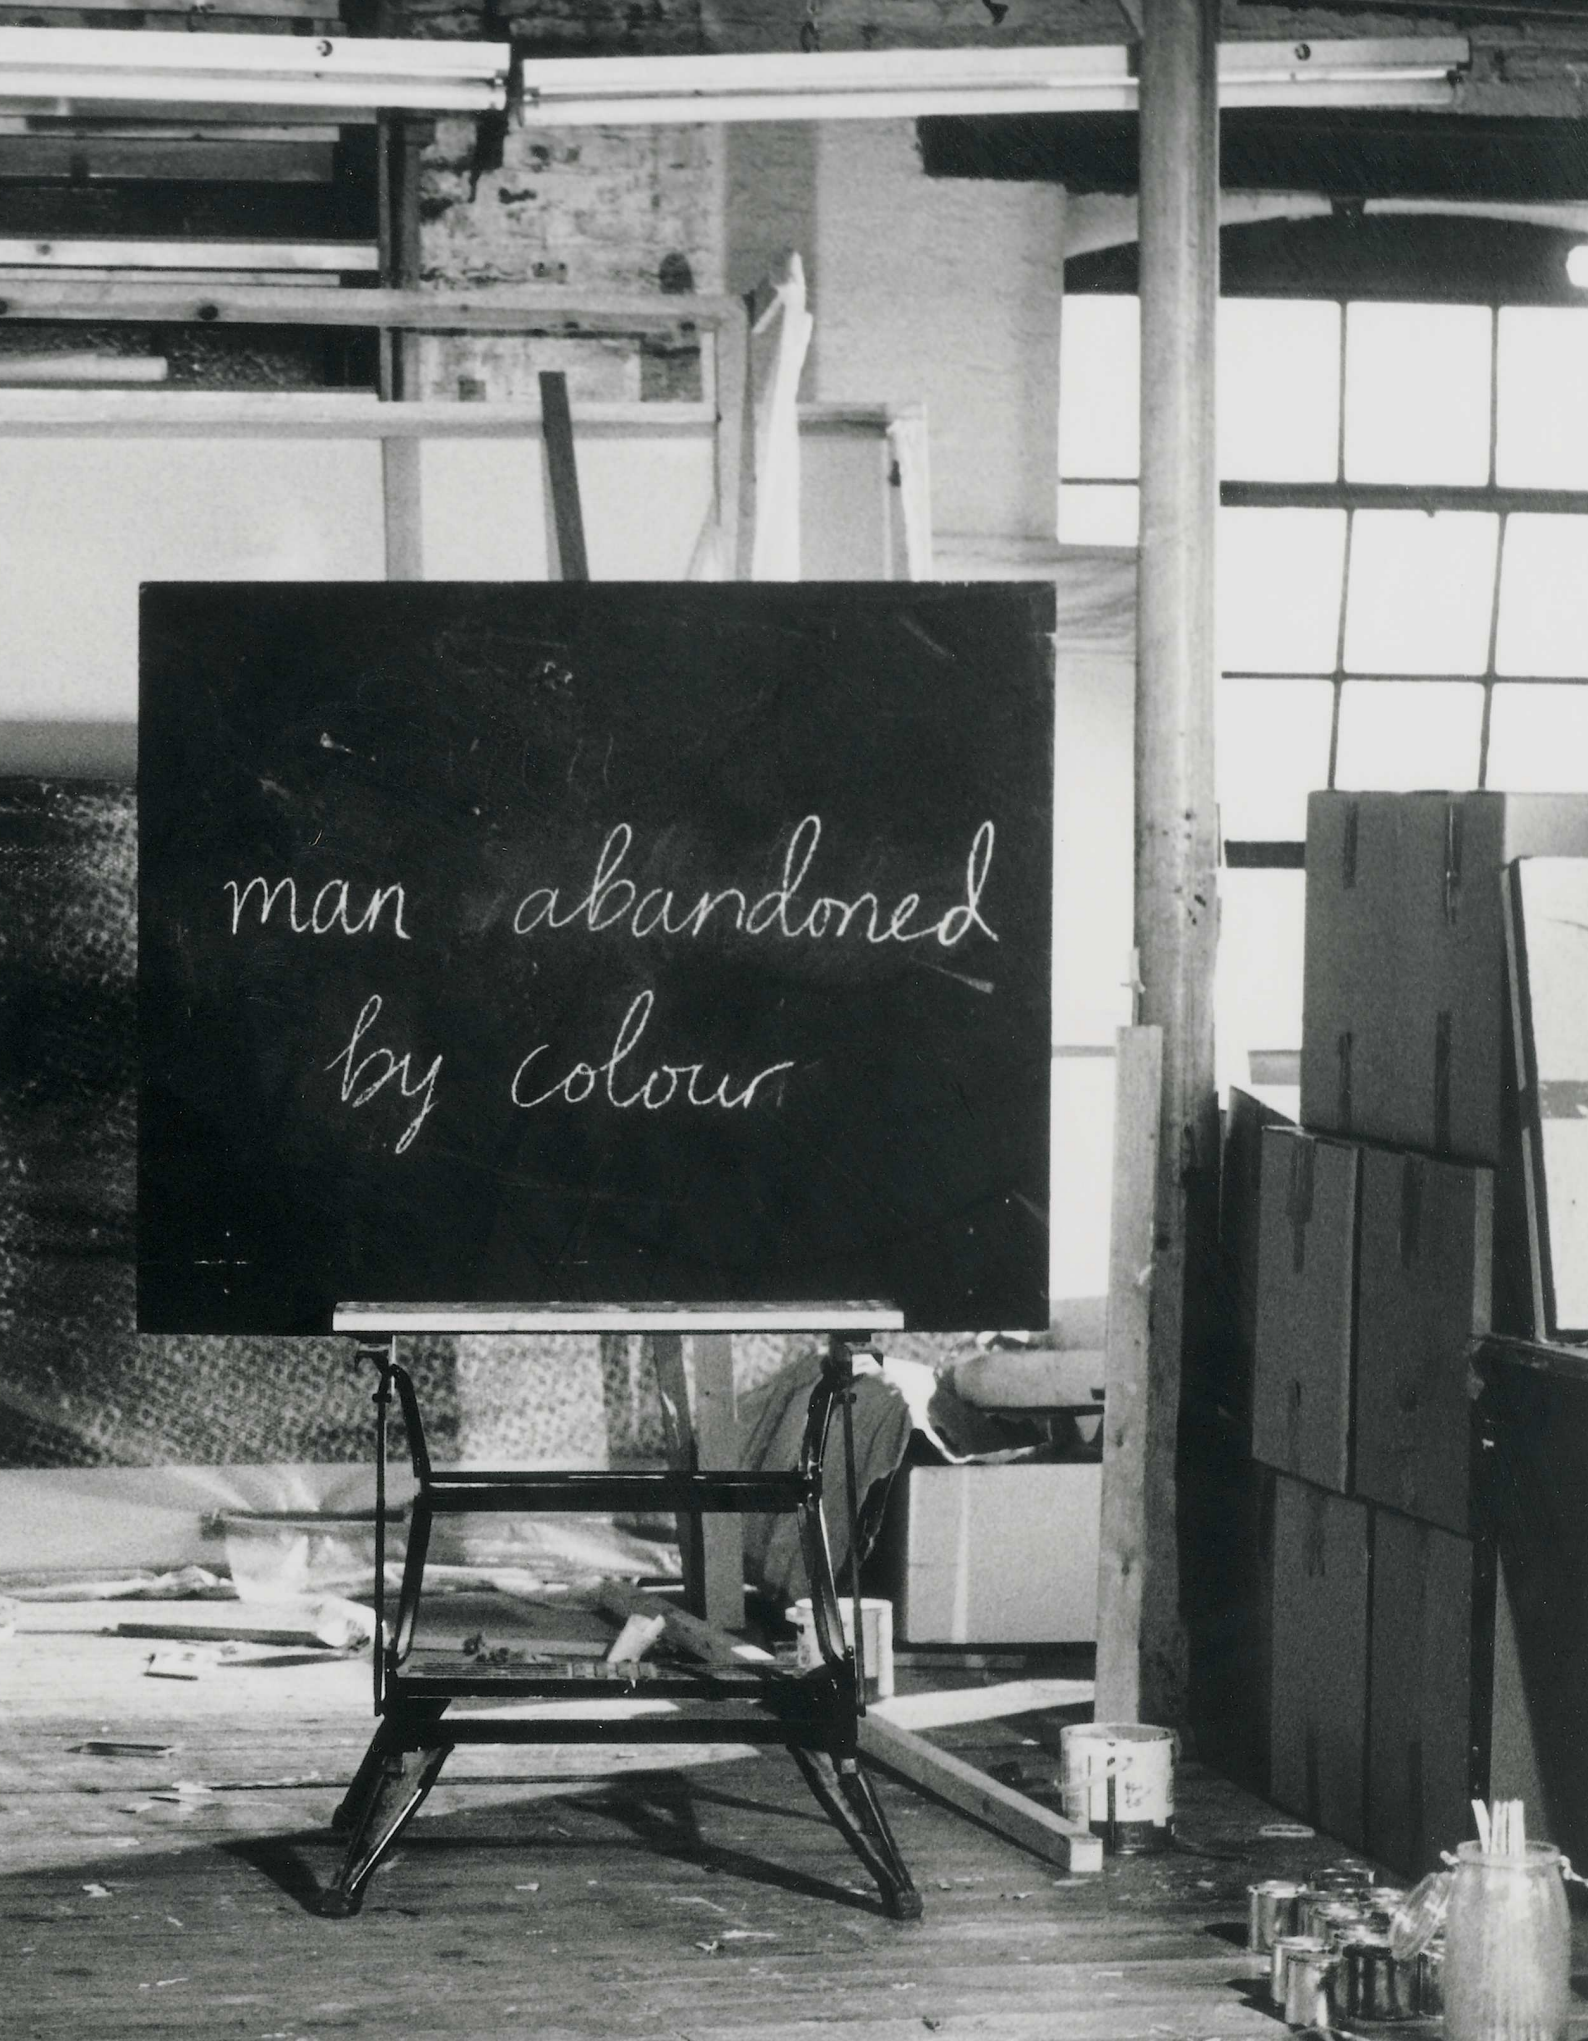 man abandoned
by colour